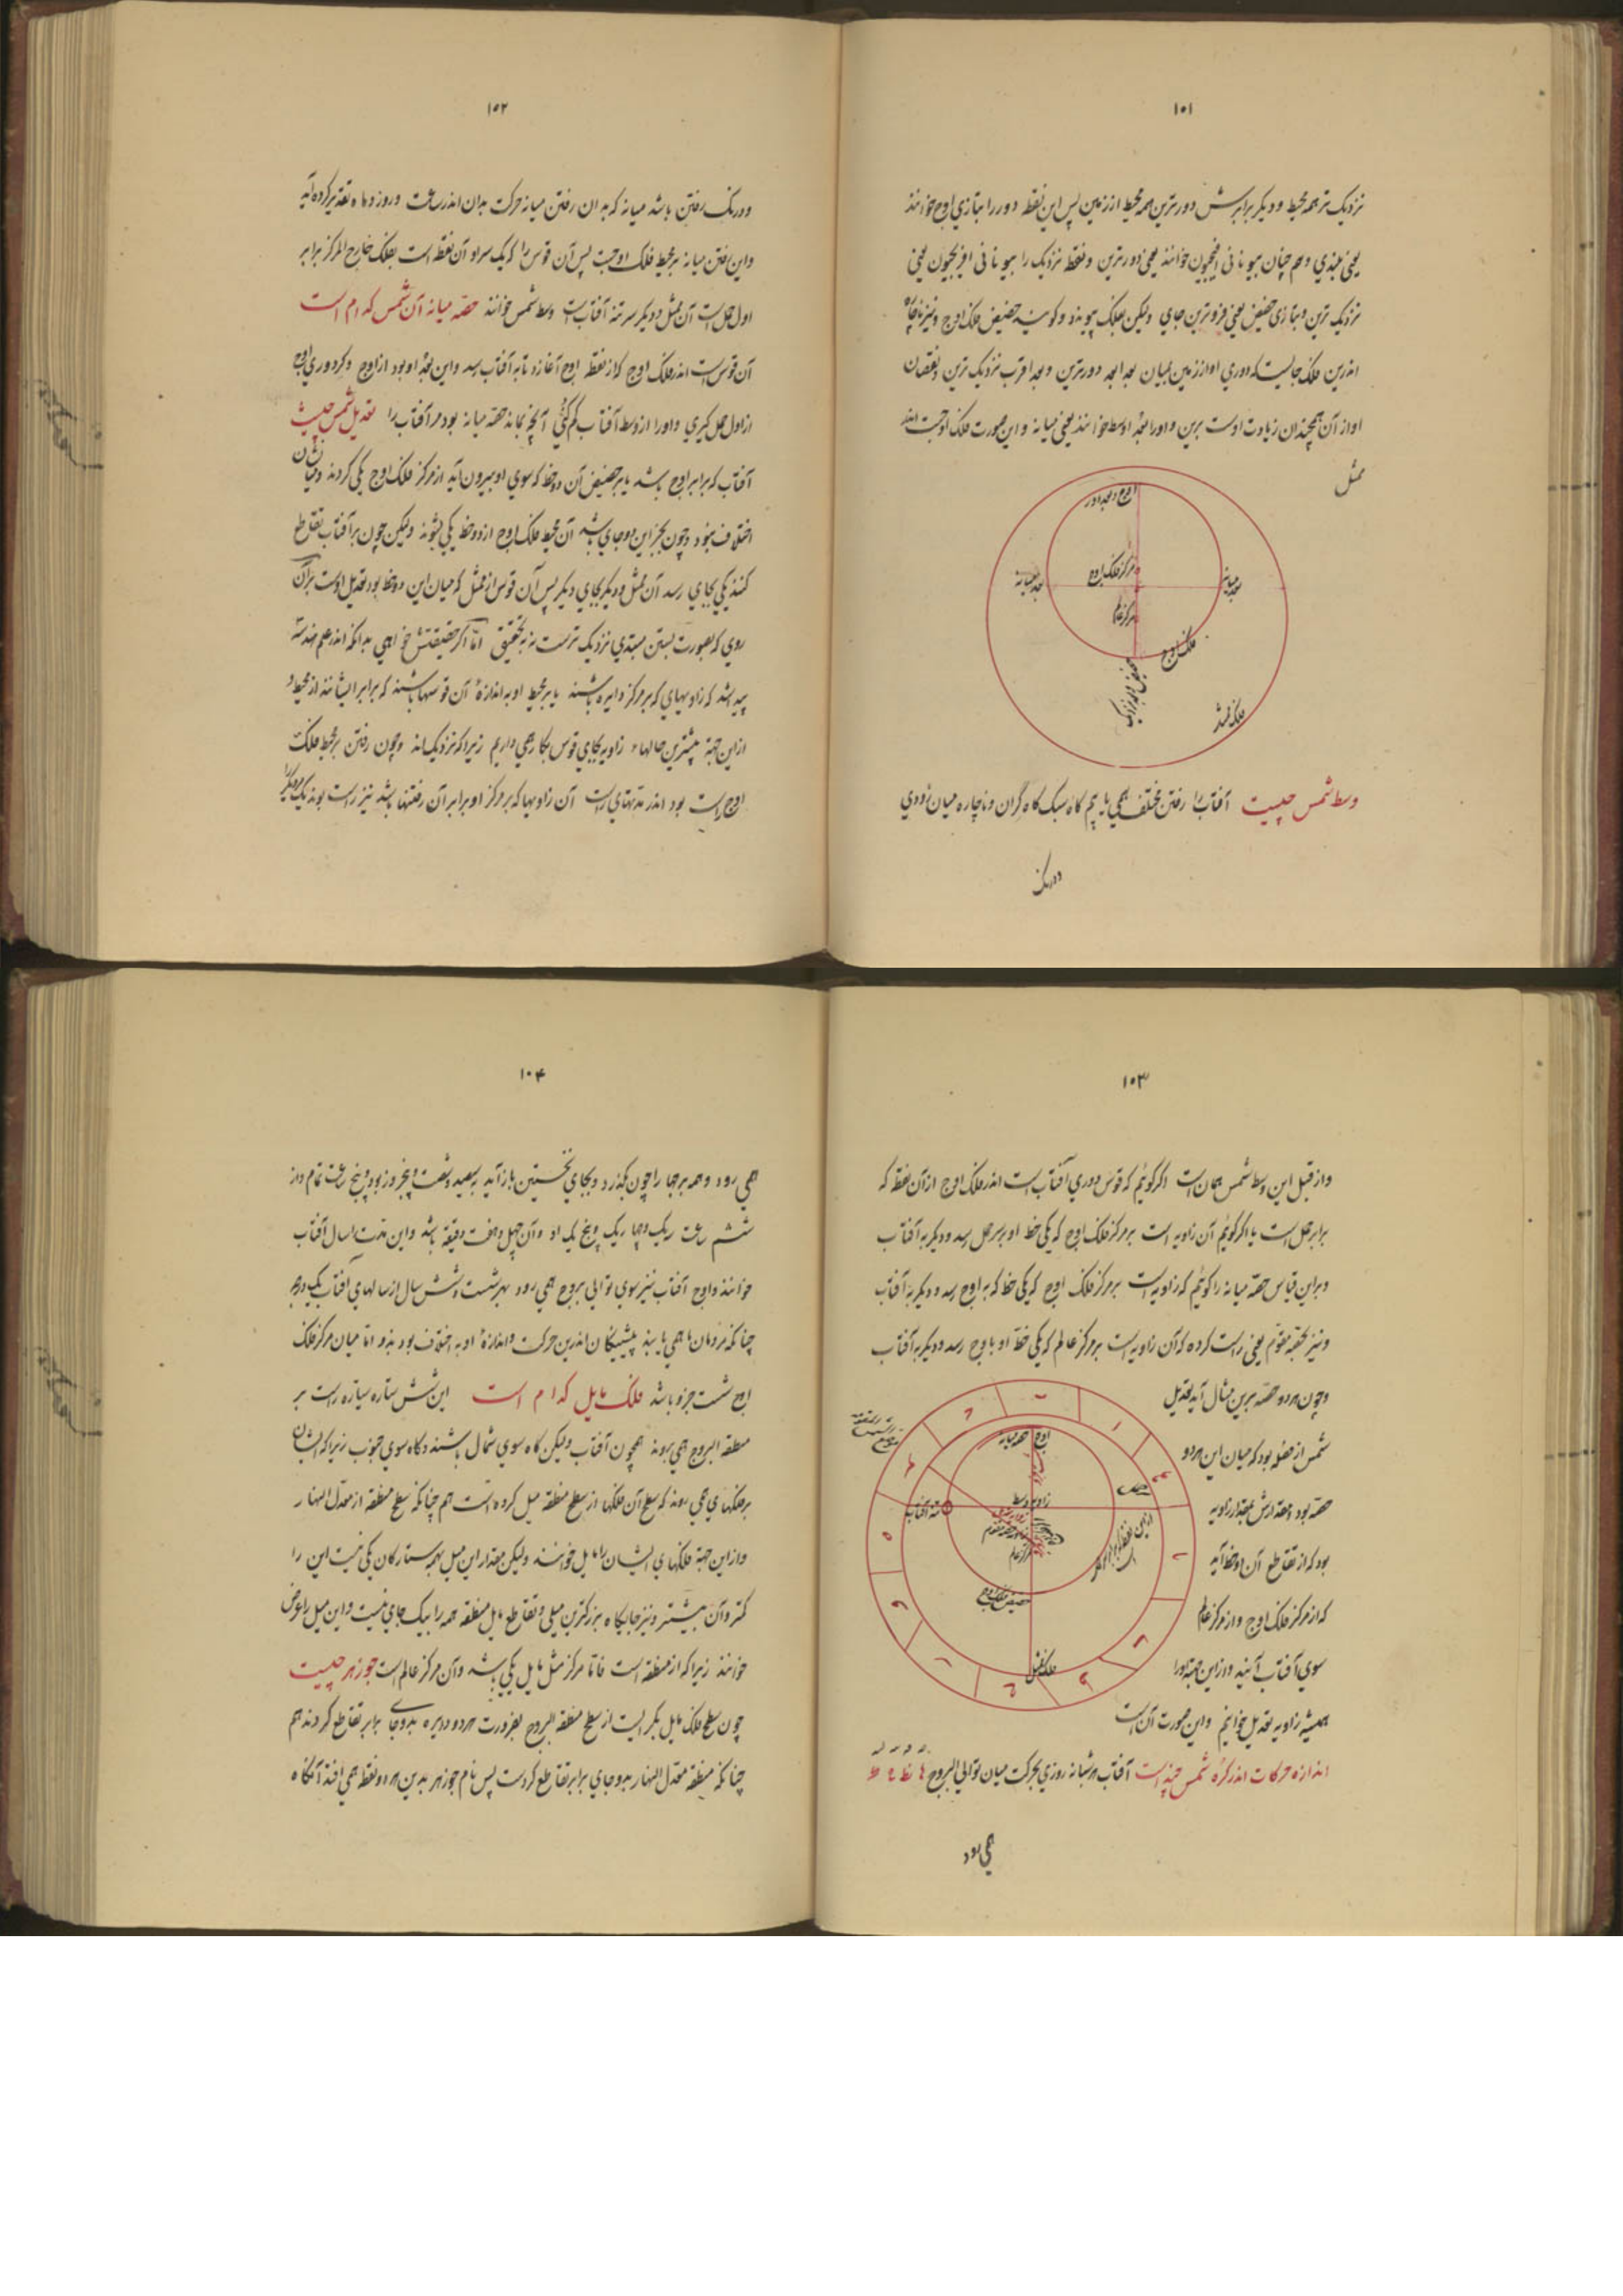 ۱۰۱
نزدیک تر همه محیط و دیگر برابرش دورترین همه محیط از زمین پس این نقطه دور را بتازی اوج خوانند
یعنی بلندی و هم چنان بیونانی افیجیون خوانند یعنی دورترین و نقطه نزدیک را بیونانی افریجیون یعنی
نزدیک ترین و بتازی حضیض یعنی فروترین جای ولیکن بفلک پیوندد و گویند حضیض فلک اوج و نیز ناچاره
اندرین فلک جایست که دوری او از زمین بمیان بعد ابعد دورترین و بعد اقرب نزدیک ترین و نقصان
او از آن همچندان زیادت اوست برین و او را بعد اوسط خوانند یعنی میانه و این صورت فلک اوجست اندر
ممثل
اوج و بعد دور
مرکز فلک اوج
بعد میانه
بعد میانه
مرکز عالم
فلک اوج
حضیض و بعد نزدیک
فلک ممثل
وسط شمس چیست آفتاب را رفتن مختلف همی یابیم گاه سبک گاه گران و ناچاره میان زودی
ودرنگ
۱۰۲
ودرنگ رفتن باشد میانه که بدان رفتن میانه حرکت بدان اندر ساعت و روز و ماه تقدیر کرده آید
و این رفتن میانه بر محیط فلک اوجست پس آن قوس را که یک سر او آن نقطه است بفلک خارج المرکز برابر
اول حمل است آن ممثل و دیگر سر تنه آفتابست وسط شمس خوانند حصه میانه آن شمس کدام است
آن قوس است اندر فلک اوج که از نقطه اوج آغازد تا به آفتاب رسد و این بعد او بود از اوج و گر دوری اوج
از اول حمل گیری و او را از وسط آفتاب کم کنی آنچه بماند حصه میانه بود مر آفتاب را تعدیل شمس چیست
آفتاب که برابر اوج باشد یا بر حضیض آن دو خط که سوی او بیرون آید از مرکز فلک اوج یکی گردند و میانشان
اختلاف نبود و چون بجز این دو جای باشد آن محیط فلک اوج از دو خط یکی نشوند ولیکن چون بر آفتاب تقاطع
کنند یکی بجای رسد آن ممثل و دیگر بجای دیگر پس آن قوس از ممثل که میان این دو خط بود تعدیل اوست بر آن
روی که بصورت بستن مبتدی نزدیک ترست نه بتحقیق اما اگر حقیقتش خواهی بدانکه اندر علم هندسه
پیدا شد که زاویهای که بر مرکز دایره باشند یا بر محیط او به اندازهٔ آن قوسها باشند که برابر ایشانند از محیط و
از این جهة بیشترین حالها، زاویه بجای قوس بکار همی داریم زیرا که نزدیک اند و چون رفتن بر محیط فلک
اوج راست بود اندر مدتهای راست آن زاویها که بر مرکز او برابر آن رفتنها باشد نیز راست بوند یکدیگر را
۱۰۳
و از قبل این وسط شمس همان است اگر گوئیم که قوس دوری آفتاب است اندر فلک اوج از آن نقطه که
برابر حمل است یا اگر گوئیم آن زاویه است بر مرکز فلک اوج که یکی خط او بسر حمل رسد و دیگر به آفتاب
و برین قیاس حصه میانه را گوئیم که زاویه است بر مرکز فلک اوج که یکی خط که به اوج رسد و دیگر به آفتاب
و نیز بحصه مقوم یعنی راست کرده که آن زاویه است بر مرکز عالم که یکی خط او باوج رسد و دیگر به آفتاب
و چون هر دو حصه برین مثال آید تعدیل
شمس از فضله بود که میان این هر دو
حصه بود و مقدارش بمقدار زاویه
بود که از تقاطع آن دو خط آید
که از مرکز فلک اوج و از مرکز عالم
سوی آفتاب آیند و از این جهة او را
همیشه زاویه تعدیل خوانیم و این صورت آن است
اوج
حصه میانه
تنه آفتاب
زاویه وسط
مرکز عالم
حضیض فلک اوج
فلک ممثل
اندازه حرکات اندر کره شمس چند است آفتاب هر شبانه روزی بحرکت میان توالی البروج
همی رود
۱۰۴
همی رود و همه برجها را چون بگذرد و بجای نخستین باز آید به سیصد و شصت و پنج روز بود و پنج ساعت تمام و از
ششم ساعت ریک و چهار یک و پنج یک او و آن چهل و هفت دقیقه باشد و این مدت را سال آفتاب
خوانند و اوج آفتاب نیز سوی توالی بروج همی رود بهر شصت و شش سال از سالهای آفتاب یک درجه
چنانکه مردمان ما همی یابند پیشینگان اندرین حرکت و اندازهٔ او به اختلاف بودند و اما میان مرکز فلک
اوج شست جزو باشد فلک مایل کدام است این شش ستاره سیاره راست بر
منطقة البروج همی بروند همچون آفتاب ولیکن گاه سوی شمال باشند و گاه سوی جنوب زیرا که ایشان
بر فلکهای همی روند که سطح آن فلکها از سطح منطقه میل کرده است هم چنانکه سطح منطقه از معدل النهار
و از این جهة فلکهای ایشان را مایل خوانند ولیکن مقدار این میل بهمه ستارگان یکی نیست این را
کمتر و آن بیشتر و نیز جایگاه بزرگترین میلی و تقاطع مایل منطقه همه را بیک جای نیست و این میل را عرض
خوانند زیرا که از منطقه است فاما مرکز ممثل مایل یکی باشد و آن مرکز عالم است جوزهر چیست
چون سطح فلک مایل بگرایست از سطح منطقة البروج بضرورت هر دو دایره بدو جای برابر تقاطع کردند هم
چنانکه منطقه معدل النهار بدو جای برابر تقاطع کردست پس نام جوزهر بدین هر دو نقطه همی افتد آنگاه